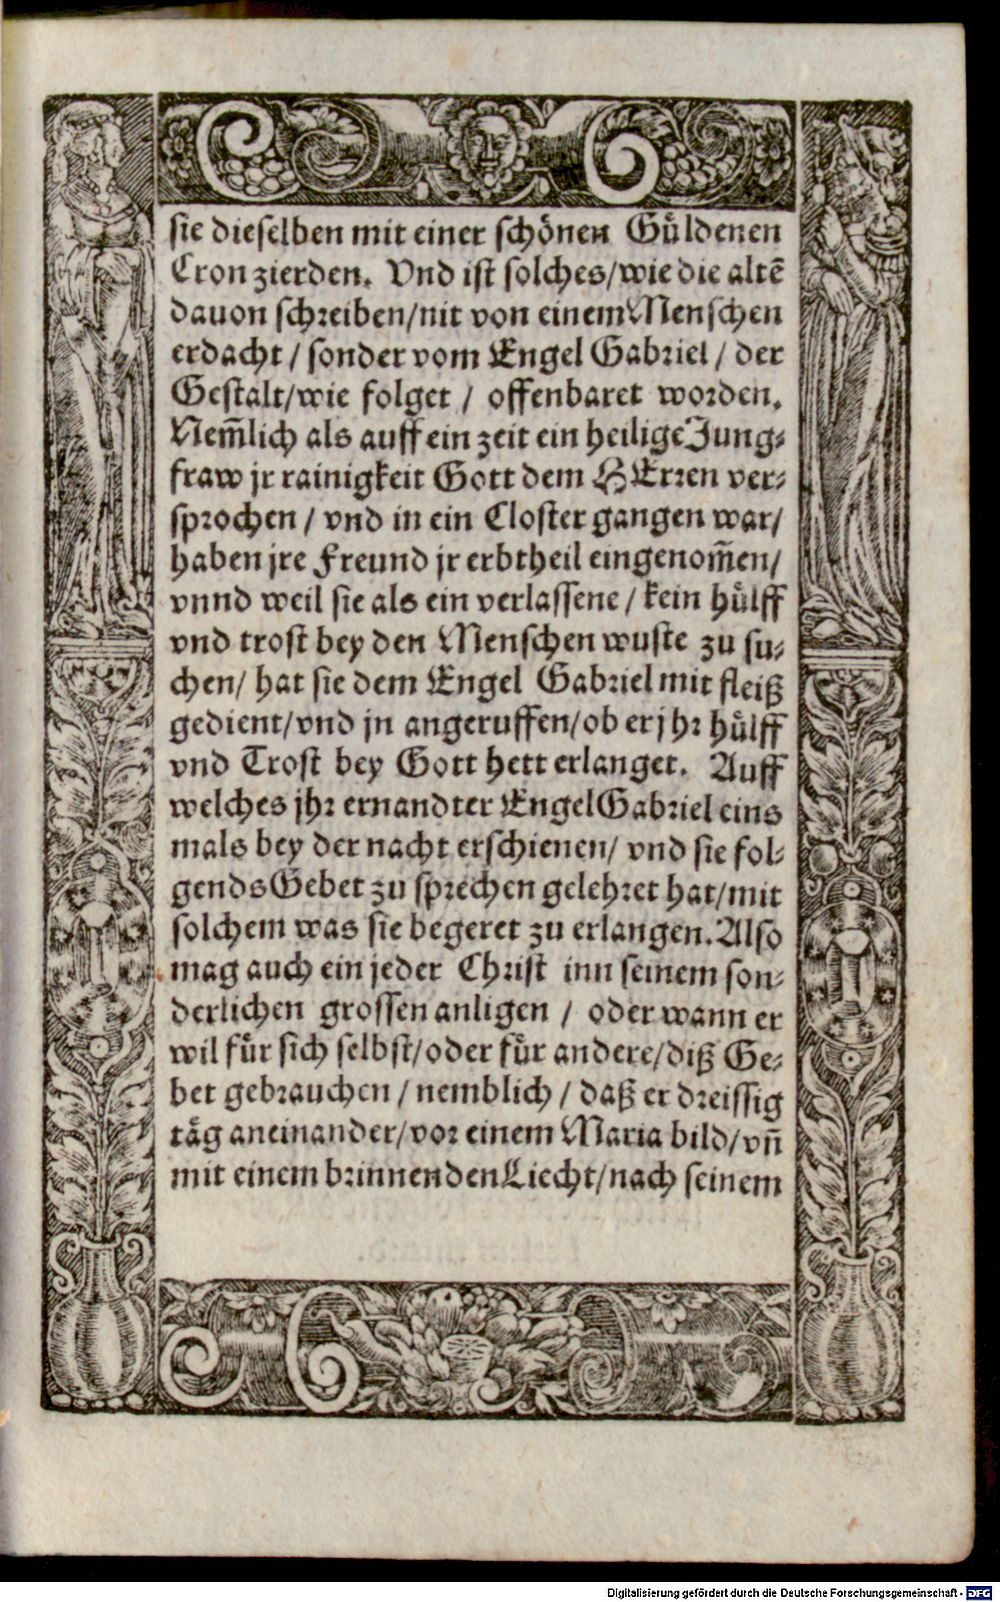 sie dieselben mit einer schönen Gůldenen
Cron zierden. Vnd ist solches/wie die altē
dauon schreiben/nit von einem Menschen
erdacht / sonder vom Engel Gabriel / der
Gestalt/wie folget / offenbaret worden.
Nem̃lich als auff ein zeit ein heilige Jung-
fraw jr rainigkeit Gott dem HErren ver-
sprochen / vnd in ein Closter gangen war/
haben jre Freund jr erbtheil eingenom̃en/
vnnd weil sie als ein verlassene / kein hůlff
vnd trost bey den Menschen wuste zu su-
chen/ hat sie dem Engel Gabriel mit fleiß
gedient/vnd jn angeruffen/ob er jhr hůlff
vnd Trost bey Gott hett erlanget. Auff
welches jhr ernandter Engel Gabriel eins
mals bey der nacht erschienen/ vnd sie fol-
gends Gebet zu sprechen gelehret hat/mit
solchem was sie begeret zu erlangen. Also
mag auch ein jeder Christ inn seinem son-
derlichen grossen anligen / oder wann er
wil für sich selbst/oder für andere/diß Ge-
bet gebrauchen / nemblich / daß er dreissig
täg aneinander/vor einem Maria bild/vñ
mit einem brinnenden Liecht/nach seinem
Digitalisierung gefördert durch die Deutsche Forschungsgemeinschaft - DFG